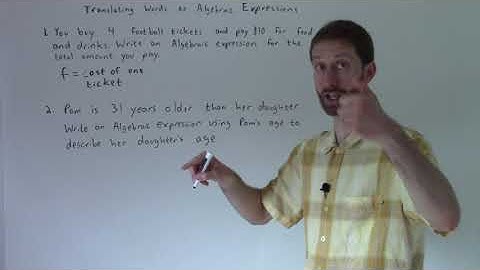 Translating Words as Algebraic Expressions
1. You buy 4 football tickets and pay $10 for food
and drinks. Write an Algebraic expression for the
total amount you pay.
f = cost of one
ticket
2. Pam is 31 years older than her daughter
Write an Algebraic Expression using Pam's age to
describe her daughter's age